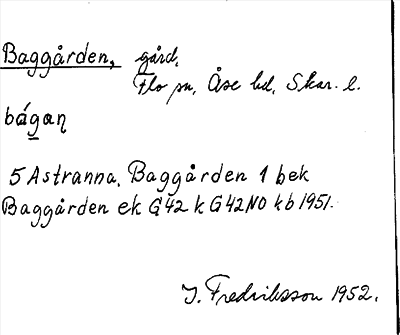 Baggården, gård,
Flo sn, Åse hd, Skar. l.
bágaŋ
5 Astranna. Baggården 1 bek
Baggården ek G 42 k G 42 NO kb 1951.
J. Fredriksson 1952.